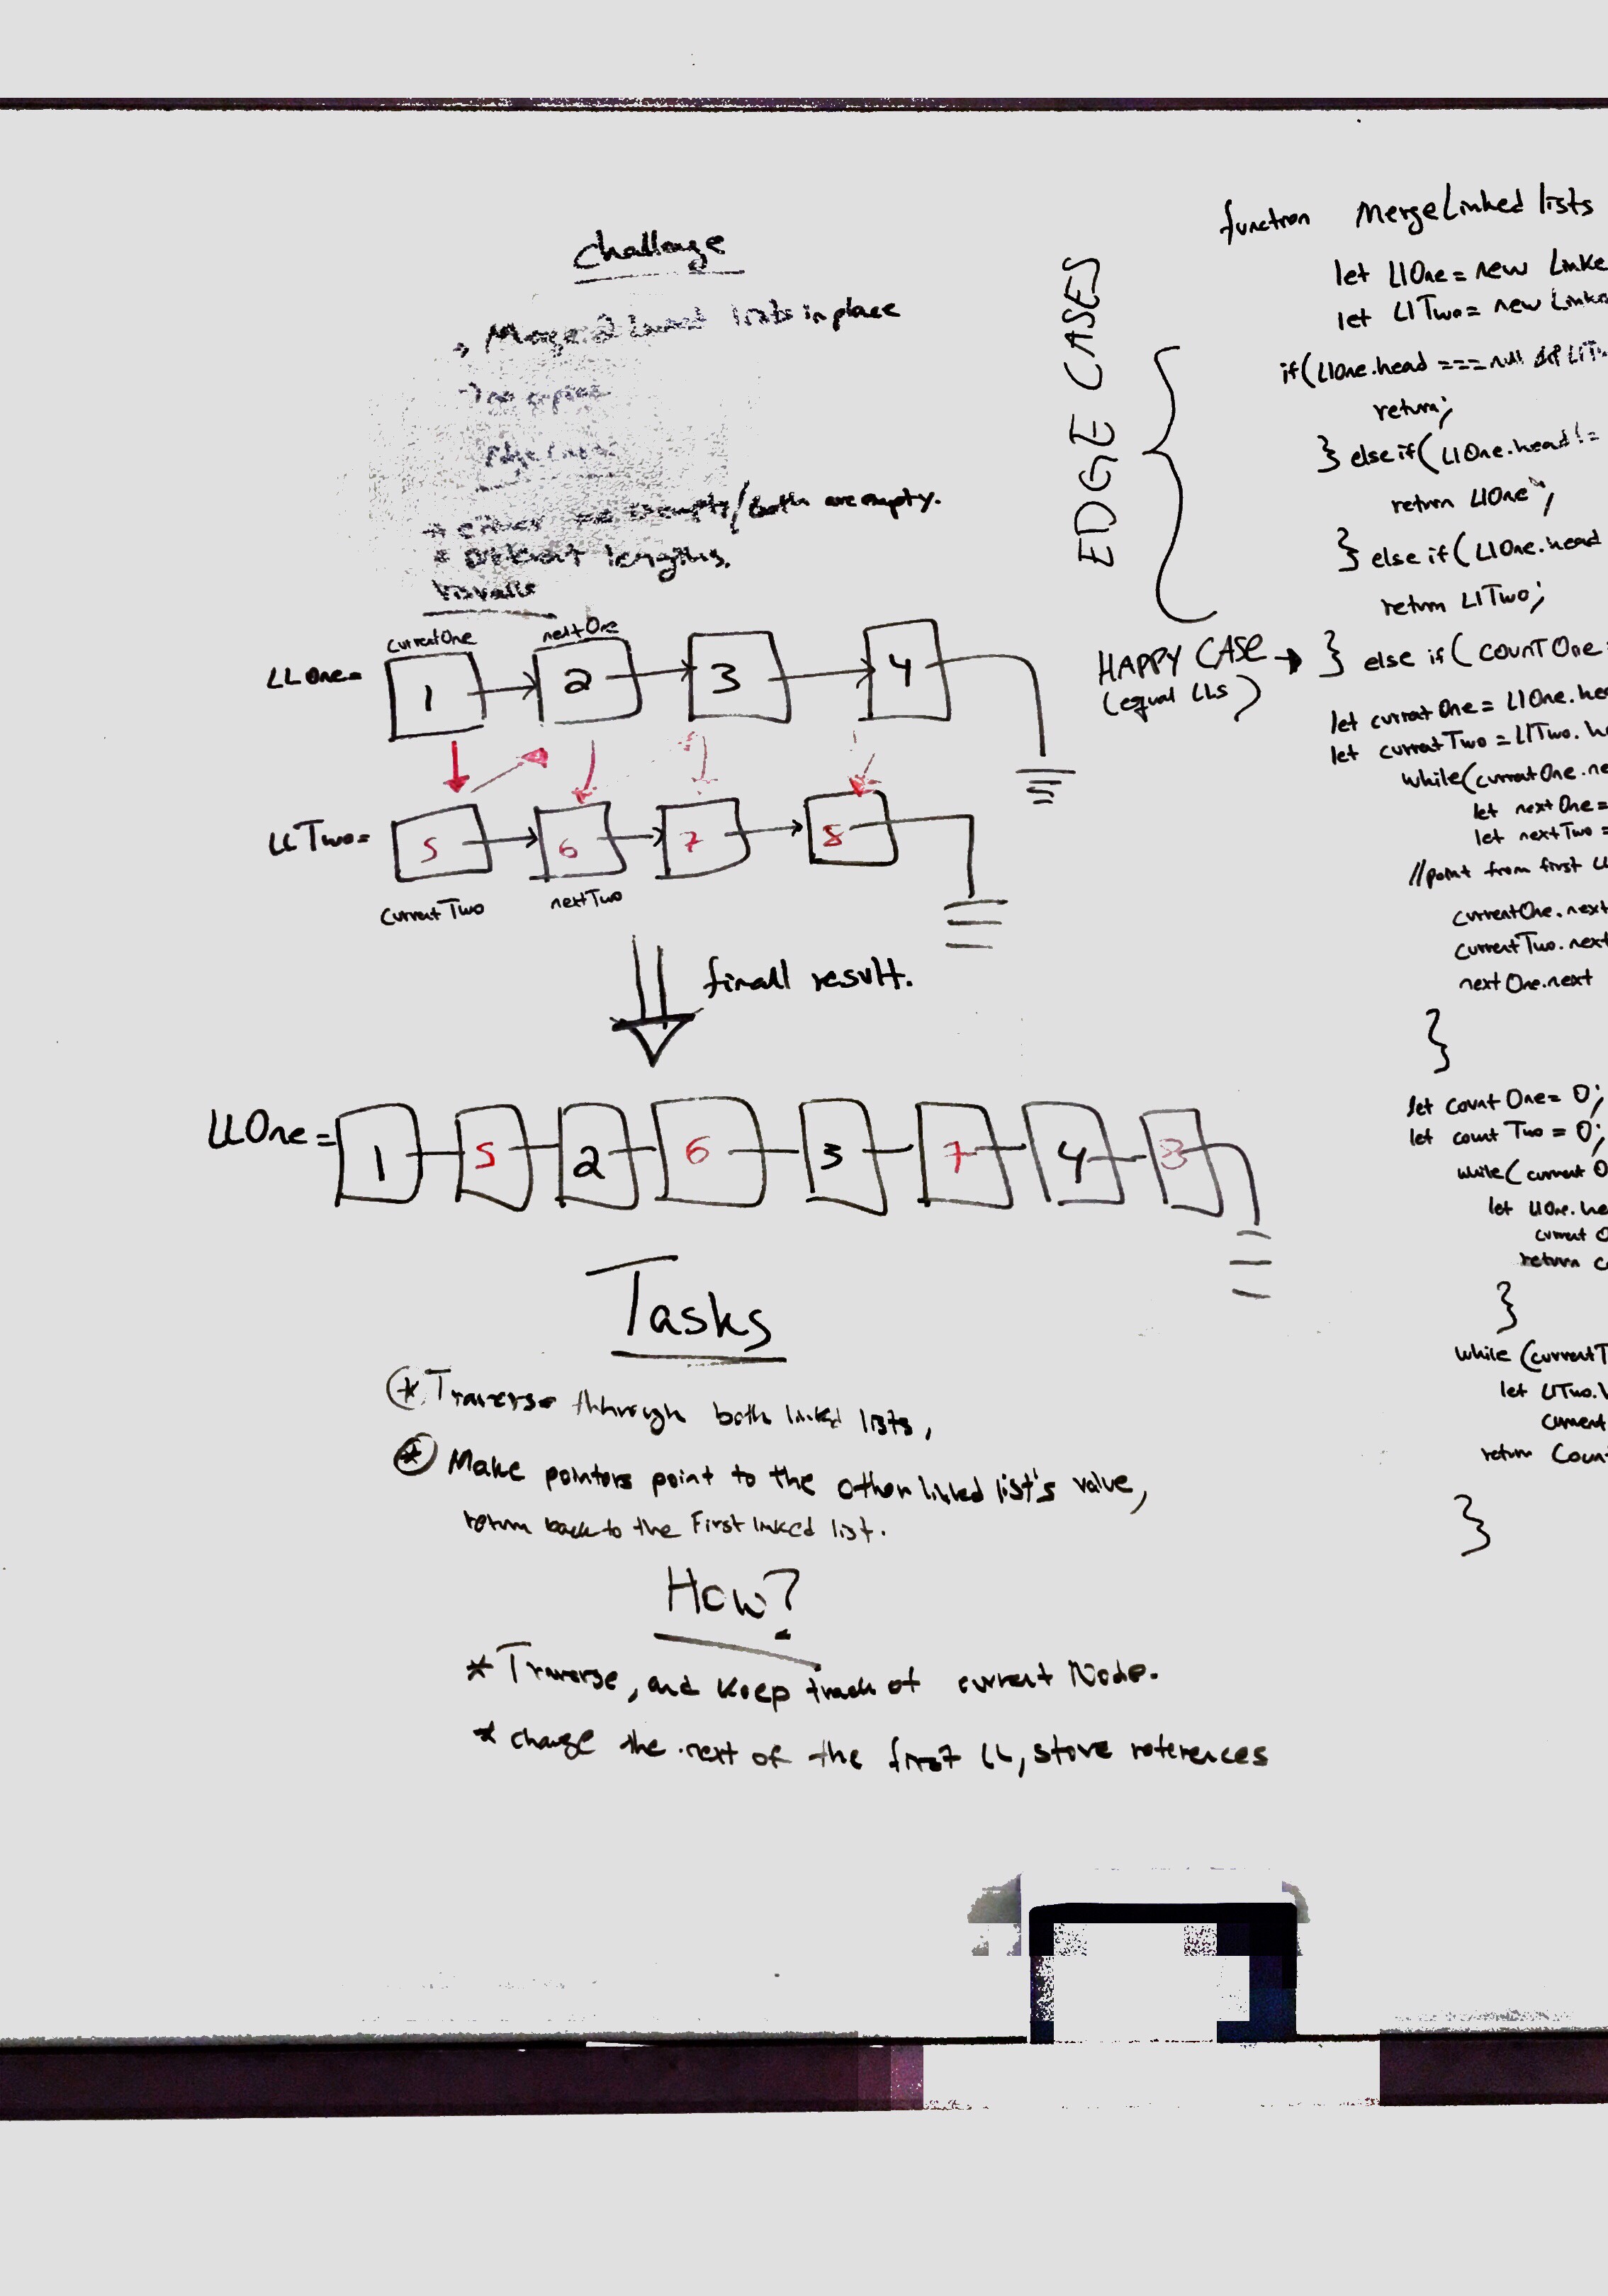 Challenge
Merge 2 lists in place
either one is empty/both are empty.
* Different lengths.
Visuals
currentOne nextOne
LLOne=
1 2 3 4
LLTwo=
5 6 7 8
currentTwo nextTwo
finall result.
LLOne=
1 5 2 6 3 7 4 8
Tasks
* Traverse thhrough both linked lists,
* Make pointers point to the other linked list's value,
return back to the First linked list.
How?
* Traverse, and keep track of current Node.
* change the next of the first LL, store references
EDGE CASES
HAPPY CASE →
(equal LLs)
function MergeLinked lists
let LlOne = new Linke
let LlTwo = new Linke
if(LlOne.head === null LlTw
return;
} else if(LlOne.head !=
return LlOne;
} else if(LlOne.head
return LlTwo;
} else if (countOne =
let currentOne = LlOne.hea
let currentTwo = LlTwo.he
while(currentOne.ne
let nextOne =
let nextTwo =
//point from first LL
currentOne.next
currentTwo.next
nextOne.next
}
let countOne = 0;
let countTwo = 0;
while(current O
let LlOne.hea
current O
return c
}
while (currentT
let LlTwo.h
current
return Count
}